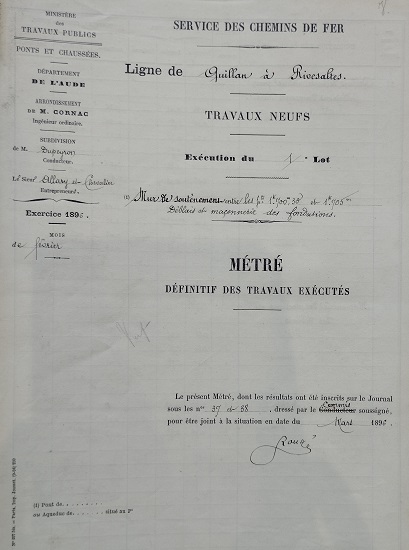 MINISTÈRE
des
TRAVAUX PUBLICS
PONTS ET CHAUSSÉES.
DÉPARTEMENT
DE L'AUDE
ARRONDISSEMENT
DE M. CORNAC
Ingénieur ordinaire.
SUBDIVISION
de M. Dupeyron
Conducteur.
Le Sieur Allary et
Entrepreneur.
Exercice 1896.
MOIS
de février
SERVICE DES CHEMINS DE FER
Ligne de Quillan à Rivesaltes.
TRAVAUX NEUFS
Exécution du 1er Lot
(1) Mur de soutènement entre les
Déblais et maçonnerie des fondations.
MÉTRÉ
DÉFINITIF DES TRAVAUX EXÉCUTÉS
Le présent Métré, dont les résultats ont été inscrits sur le Journal
sous les nos 37 et 38, dressé par le Commis Conducteur soussigné,
pour être joint à la situation en date du Mars 1896.
(1) Pont de
ou Aqueduc de situé au Pt